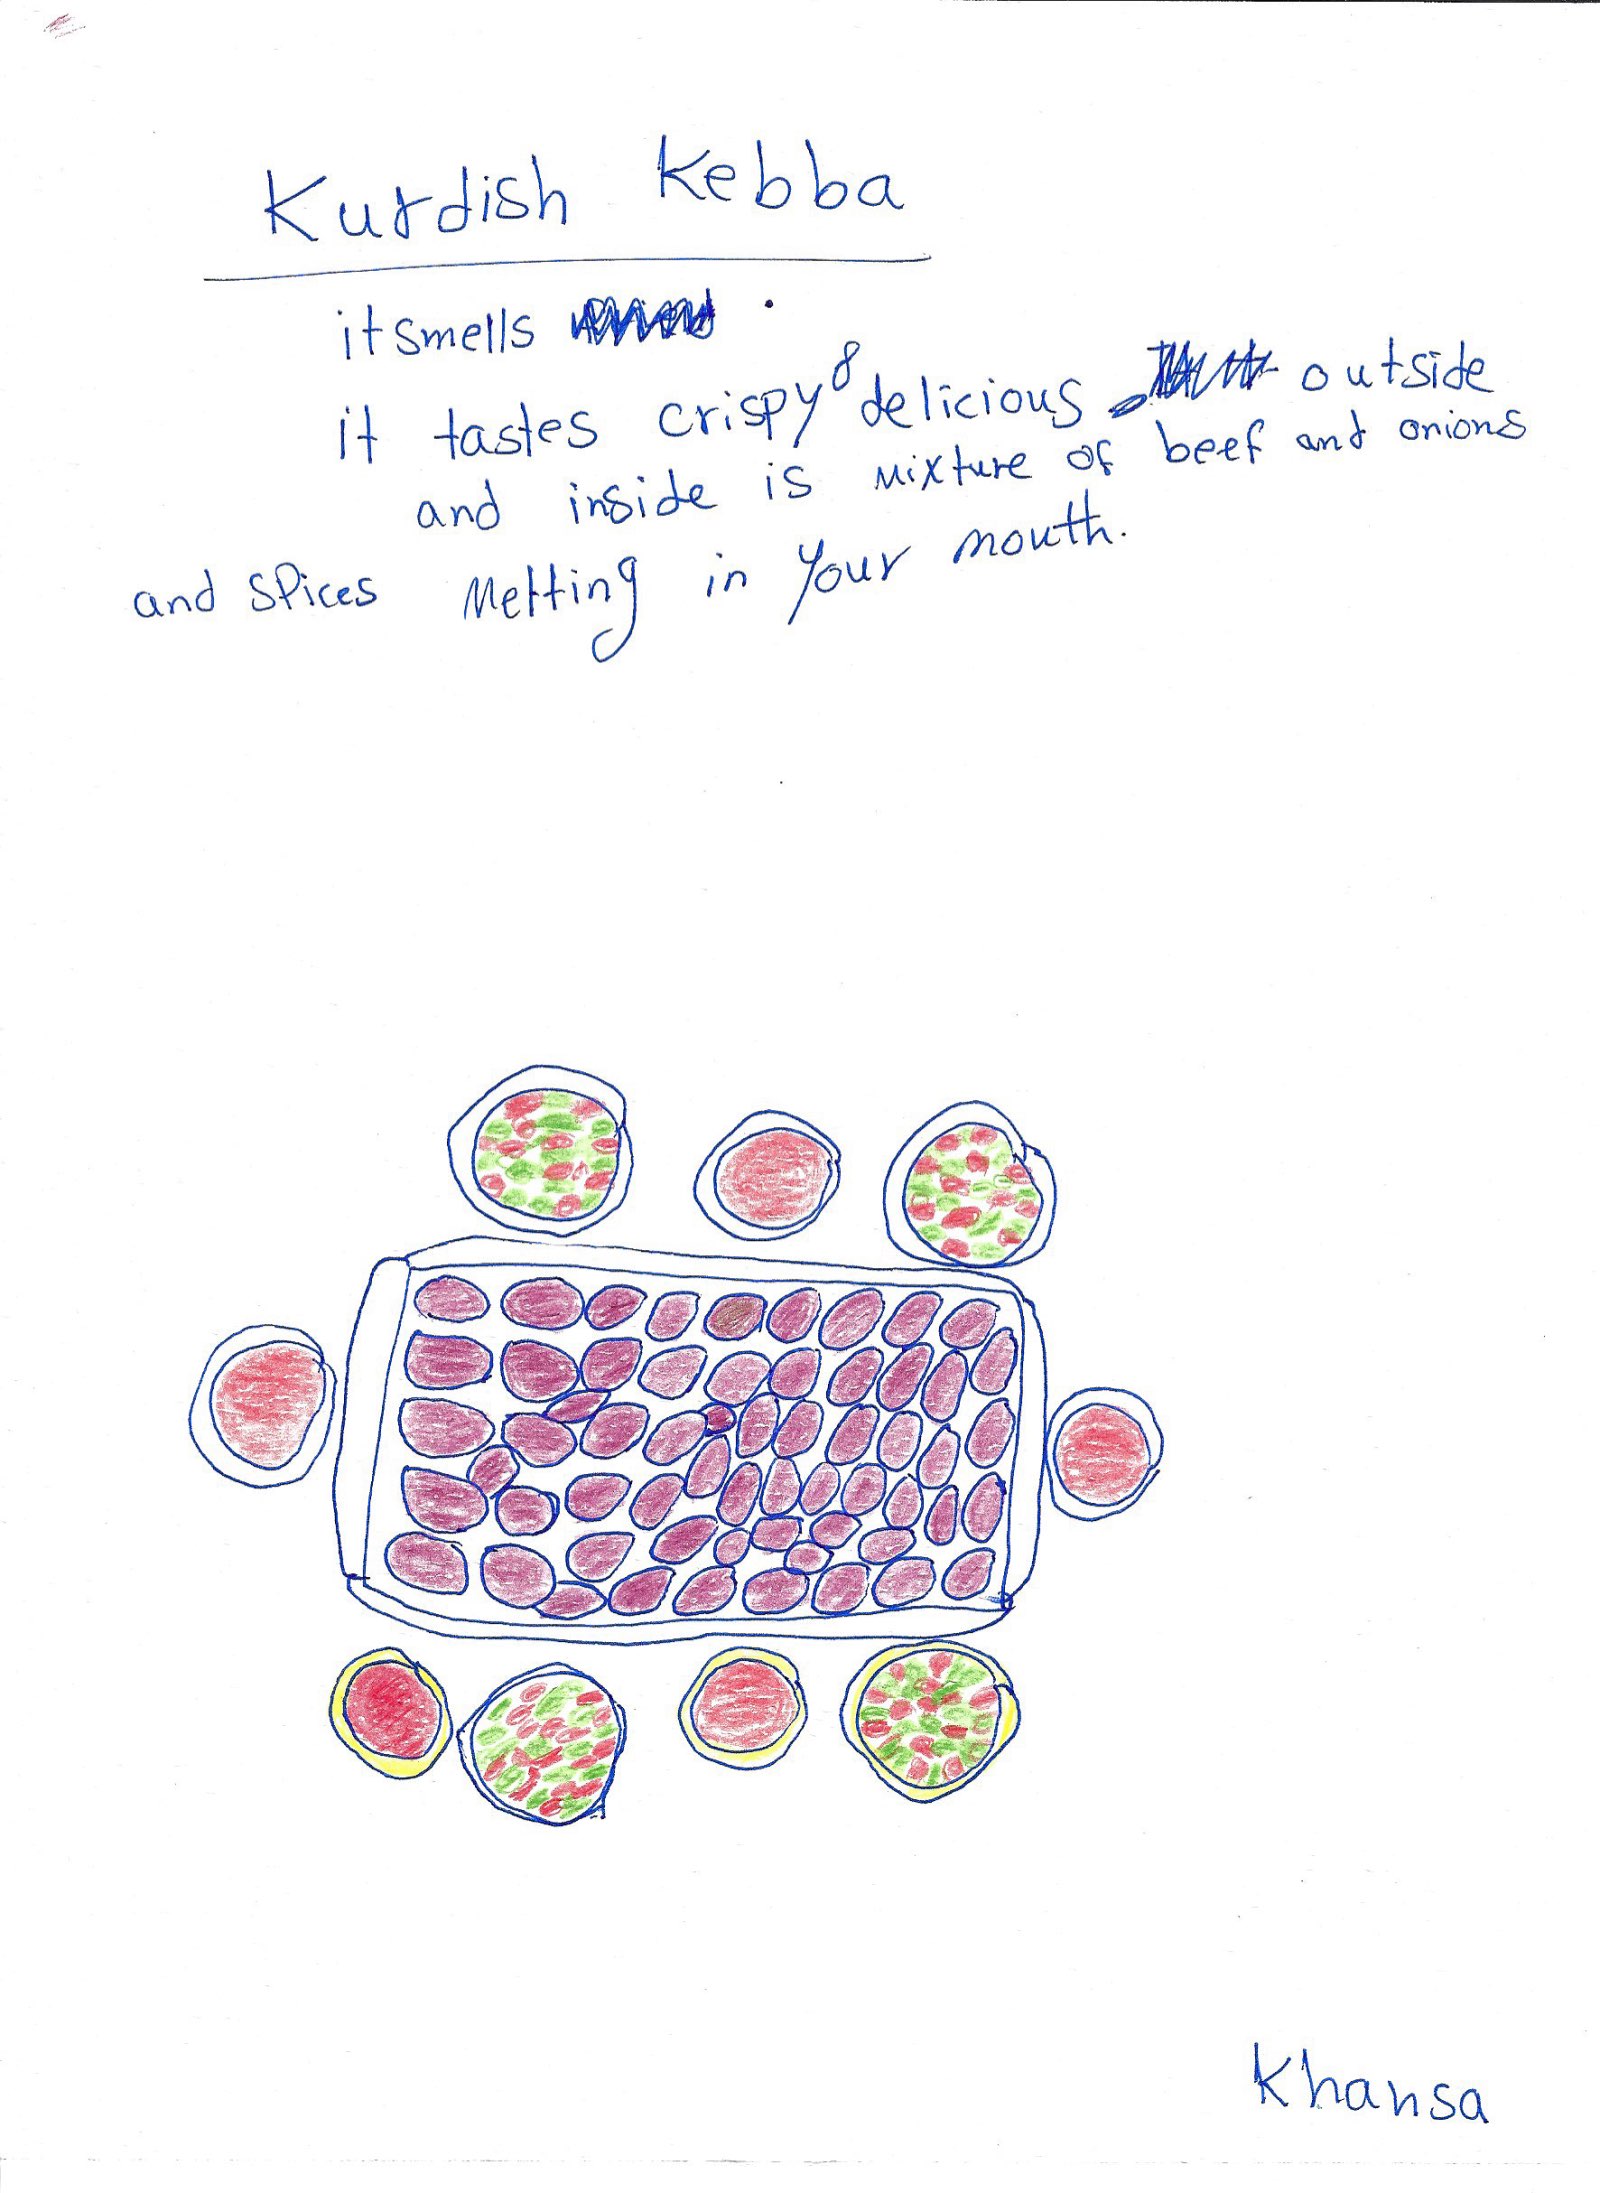 Kurdish Kebba
it smells .
it tastes crispy & delicious outside
and inside is mixture of beef and onions
and spices melting in your mouth.
Khansa